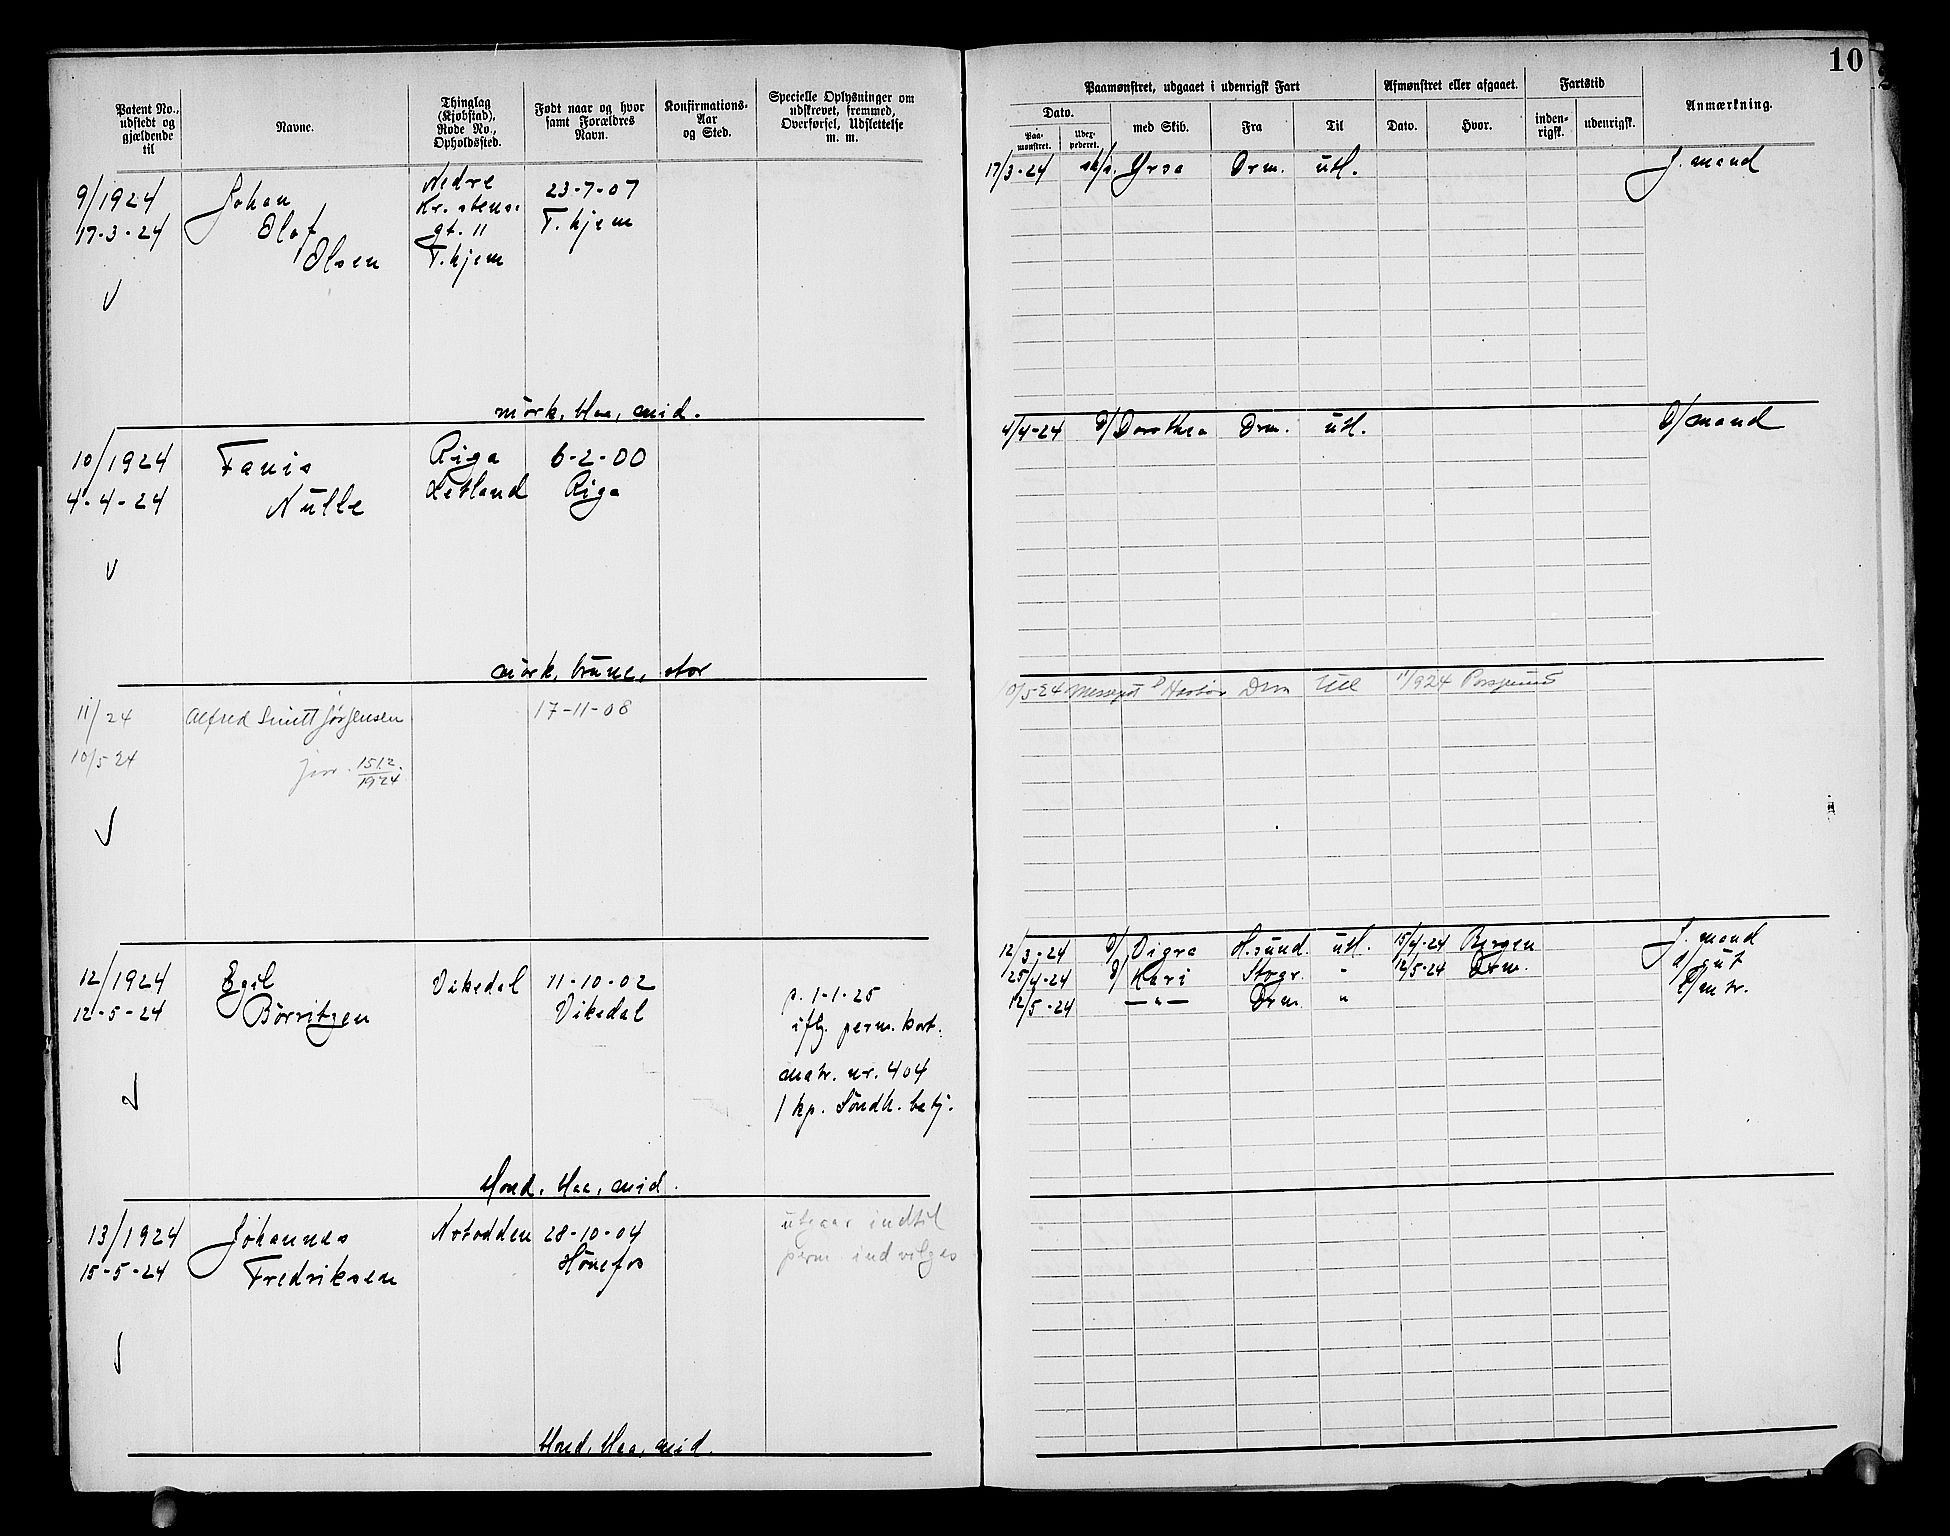 10
Patent No., udstedt og gjældende til
Navne.
Thinglag (Kjøbstad), Rode No., Opholdssted.
Født naar og hvor samt Forældres Navn.
Konfirmations-Aar og Sted.
Specielle Oplysninger om udskrevet, fremmed, Overførsel, Udslettelse m. m.
Paamønstret, udgaaet i udenrigsk Fart
Afmønstret eller afgaaet.
Fartstid
Anmærkning.
Dato.
med Skib.
Fra
Til
Dato.
Hvor.
inden-rigsk.
udenrigsk.
Paa-mønstret.
9/1924
17-3-24
Johan
Olaf
Olsen
Nedre
Kr.stens.
gt. 11
T.hjem
23-7-07
T.hjem
mörk, blaa, mid.
17/3-24 Yrsa Drm. utl. J. mand
10/1924
4-4-24
Nulle
Riga
Letland
6-2-00
Riga
mörk, brune, stor
4/4-24 D/ Dorothea Drm. utl. mand
11/24
10/5-24
Alfred Smitt Jørgensen
jnr. 1512/1924
17-11-08
10/5-24 Messegut D Drm Utl 1/924 Porsgrund
12/1924
12-5-24
Egil
Börritzen
Vikedal
11-10-02
Vikedal
p. 1-1-25
iflg. perm. kort.
matr. nr. 404
1 kp. Söndh. batj.
blond, blaa, mid.
12/3-24 D/ Vigra H.sund. utl. 15/4-24 Bergen J. mand
25/4-24 D/ Kari Stvgr. " 12/5-24 Drm. gut
12/5-24 —"— Drm. " m tr.
13/1924
15-5-24
Johannes
Fredriksen
Notodden
28-10-04
Hönefos
utgaar indtil
perm. indvilges
blond, blaa, mid.